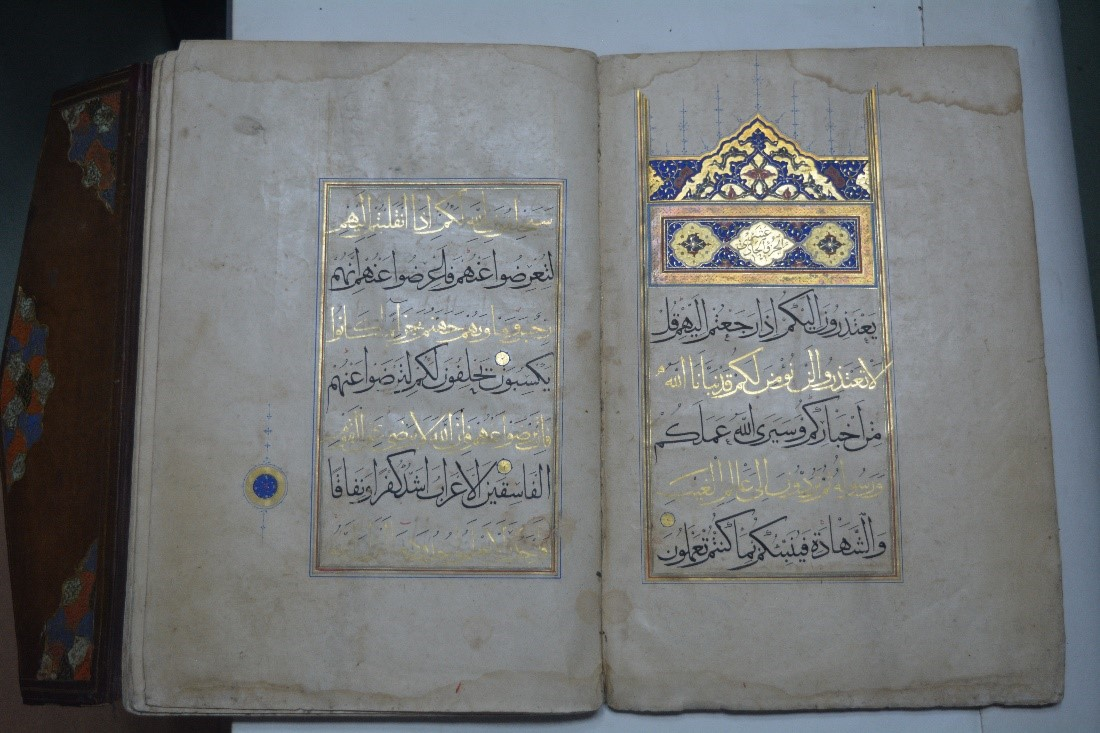 يعتذرون اليكم اذا رجعتم اليهم قل
لا تعتذروا لن نؤمن لكم قد نبأنا الله
من أخباركم وسيرى الله عملكم
ورسوله ثم تردون الى عالم الغيب
والشهادة فينبئكم بما كنتم تعملون
سيحلفون بالله لكم اذا انقلبتم اليهم
لتعرضوا عنهم فاعرضوا عنهم انهم
رجس ومأويهم جهنم جزاء بما كانوا
يكسبون يحلفون لكم لترضوا عنهم
فان ترضوا عنهم فان الله لا يرضى عن القوم
الفاسقين الاعراب اشد كفرا ونفاقا